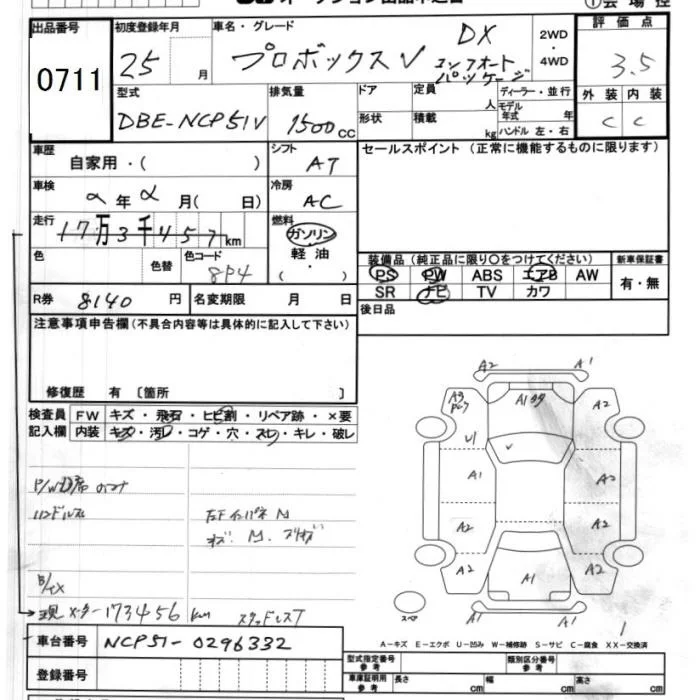 出品番号 0711
初度登録年月 25 月
車名・グレード プロボックスV DX コンフォートパッケージ
2WD・4WD
①会場控
評価点 3.5
外装 C 内装 C
型式 DBE-NCP51V
排気量 1500cc
ドア 形状
定員 人 積載 kg
ディーラー・並行
モデル年式 年
ハンドル 左・右
車歴 自家用・( )
シフト AT
セールスポイント(正常に機能するものに限ります)
車検 年 月( 日)
冷房 AC
走行 17万3千457km
燃料 ガソリン・軽油・( )
色 色替 色コード 8P4
装備品(純正品に限り○をつけてください)
PS PW ABS エアB AW
SR ナビ TV カワ
新車保証書 有・無
R券 8140円
名変期限 月 日
後日品
注意事項申告欄(不具合内容等は具体的に記入して下さい)
修復歴 有 〔箇所 〕
検査員記入欄 FW キズ・飛石・ヒビ割・リペア跡・×要
内装 キズ・汚レ・コゲ・穴・スレ・キレ・破レ
A2 A1
A3 A1 A2
U1
A1 A2
A2 A2
A2 A1 A2
A2 A1
スペア
現メーター173456km スタッドレスT
車台番号 NCP51-0296332
登録番号
A-キズ E-エクボ U-凹み W-補修跡 S-サビ C-腐食 XX-交換済
型式指定番号 参考
類別区分番号 参考
車庫証明用 参考 長さ cm 幅 cm 高さ cm